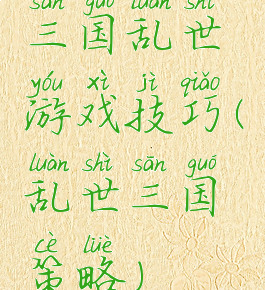 sān guó luàn shì
三国乱世
yóu xì jì qiǎo
游戏技巧(
luàn shì sān guó
乱世三国
cè lüè
策略)